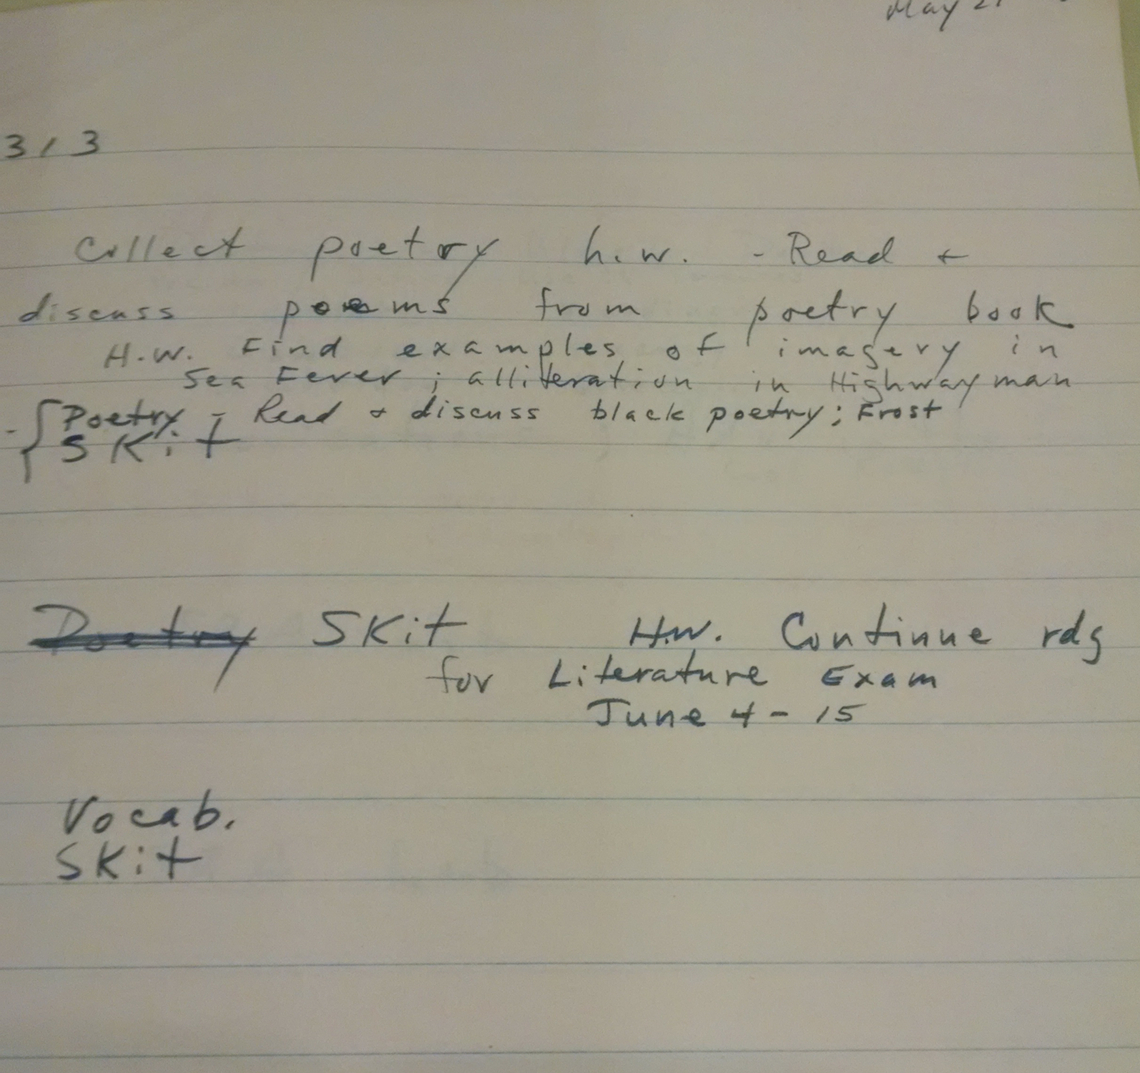 May 21
313
Collect poetry h.w. - Read +
discuss poems from poetry book
H.W. Find examples of imagery in
Sea Fever; alliteration in Highwayman
- { Poetry - Read + discuss black poetry; Frost
SKit
Poetry SKit H.W. Continue rdg
for Literature Exam
June 4 - 15
Vocab.
SKit